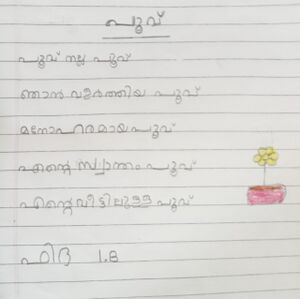 പൂവ്
പൂവ് നല്ല പൂവ്
ഞാൻ വളർത്തിയ പൂവ്
മനോഹരമായ പൂവ്
എന്റെ സ്വന്തം പൂവ്
എന്റെ വീട്ടിലുള്ള പൂവ്
ഫിദ 1.B